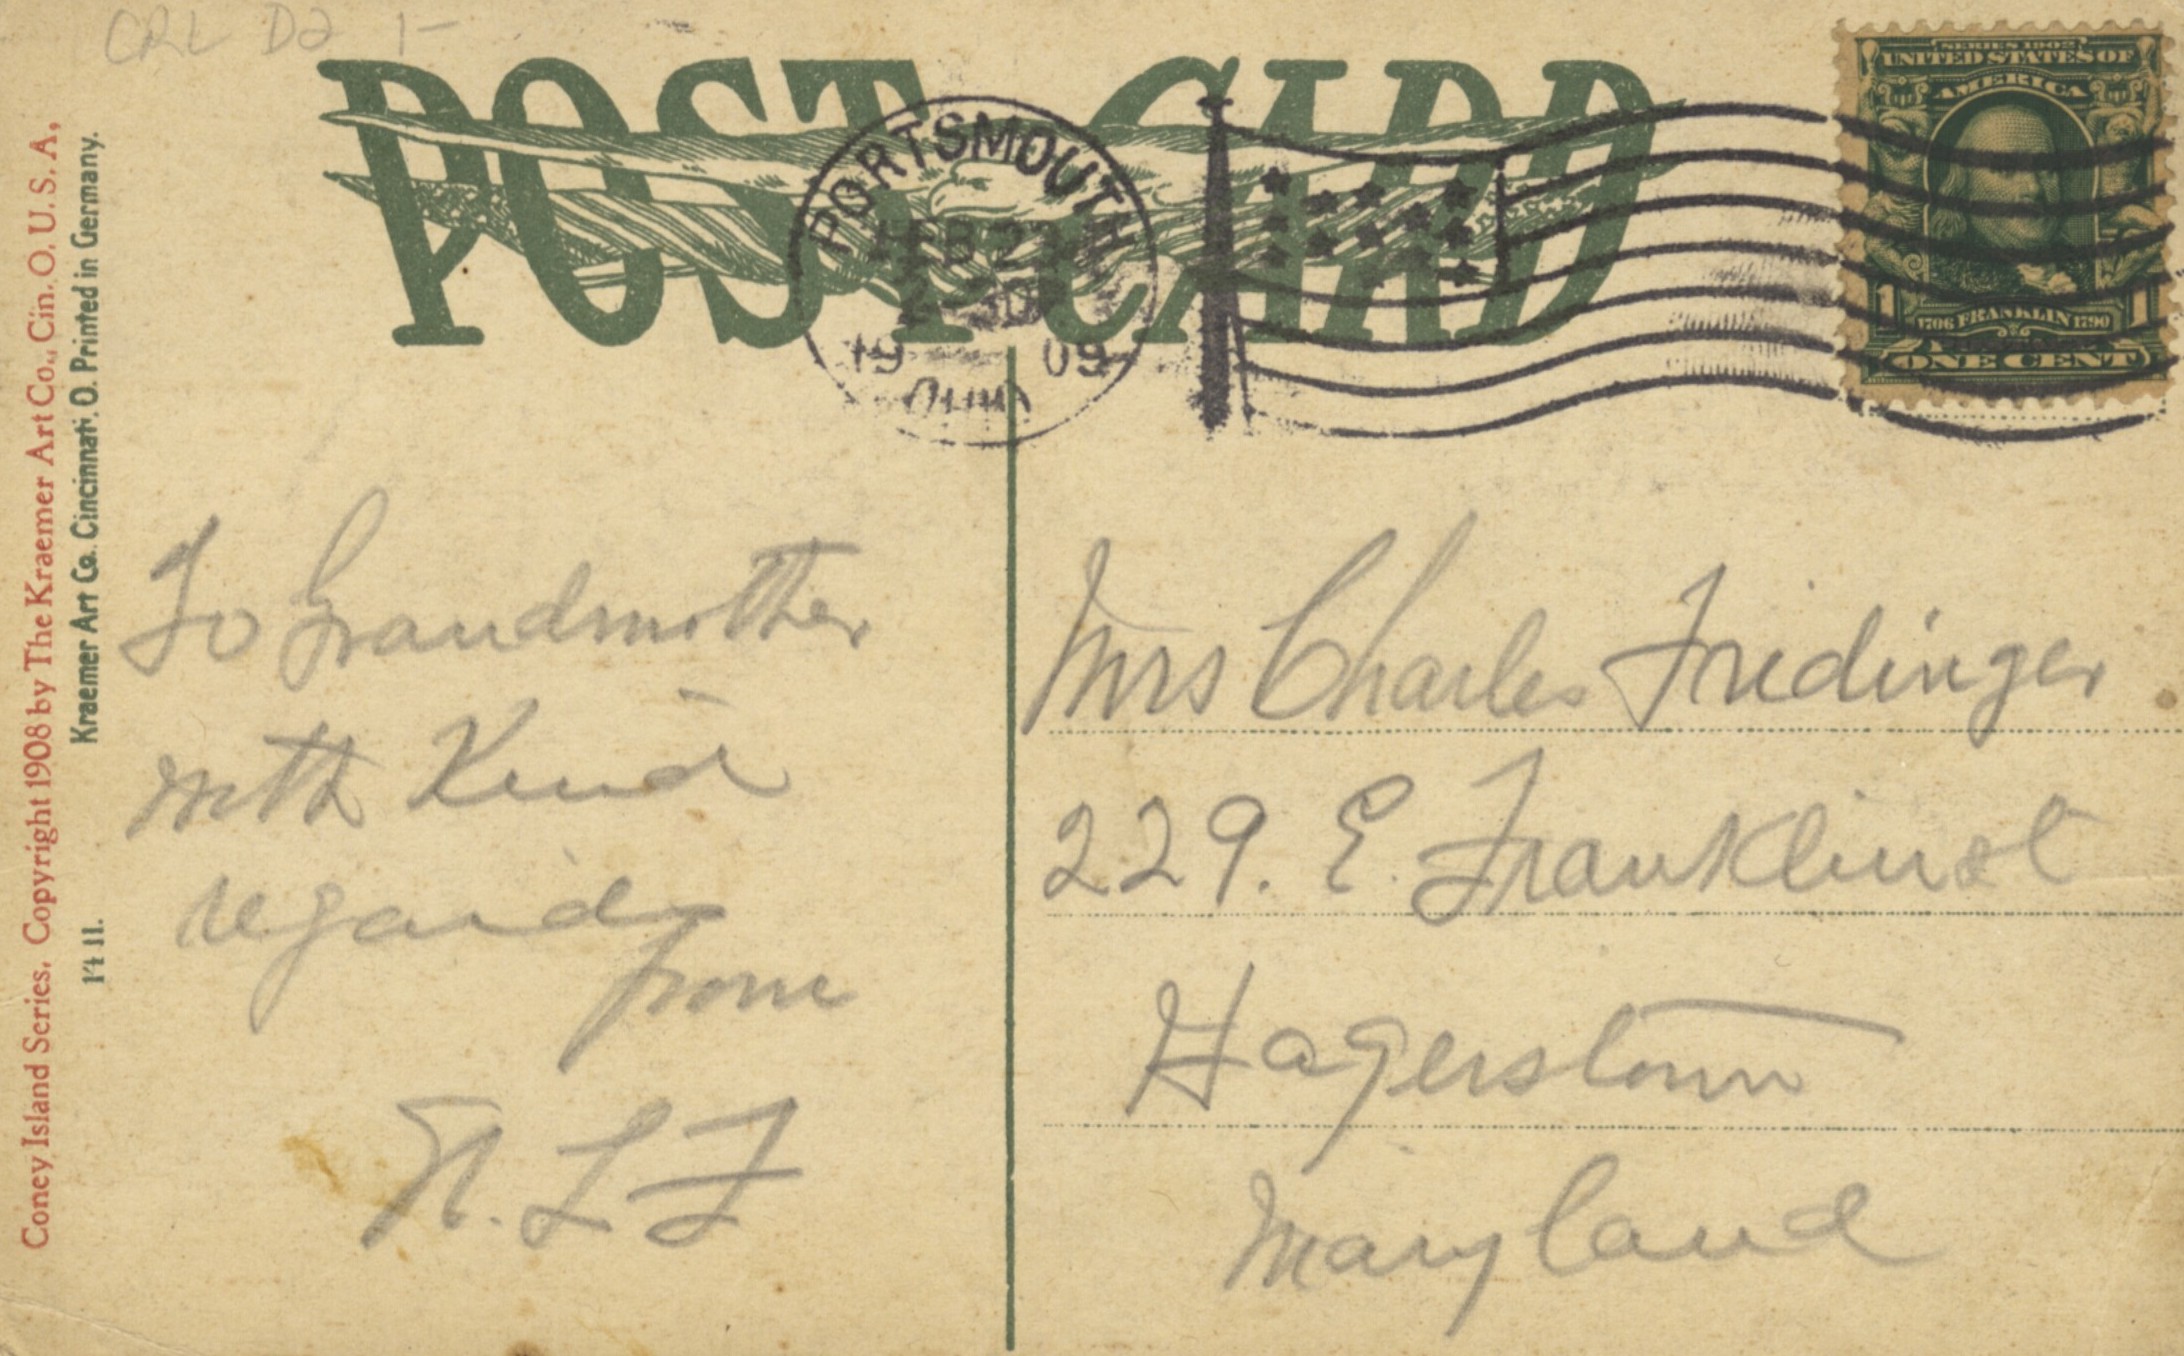 CRL D2 1-
POST CARD
PORTSMOUTH
FEB 2
19 09
OHIO
SERIES 1902
UNITED STATES OF
AMERICA
1 1
1706 FRANKLIN 1790
ONE CENT
Coney Island Series. Copyright 1908 by The Kraemer Art Co., Cin. O. U. S. A.
1411. Kraemer Art Co. Cincinnati. O. Printed in Germany.
To Grandmother
with Kind
regards
from
N. L F
Mrs Charles Fridinger
229. E. Franklin st
Hagerstown
Maryland